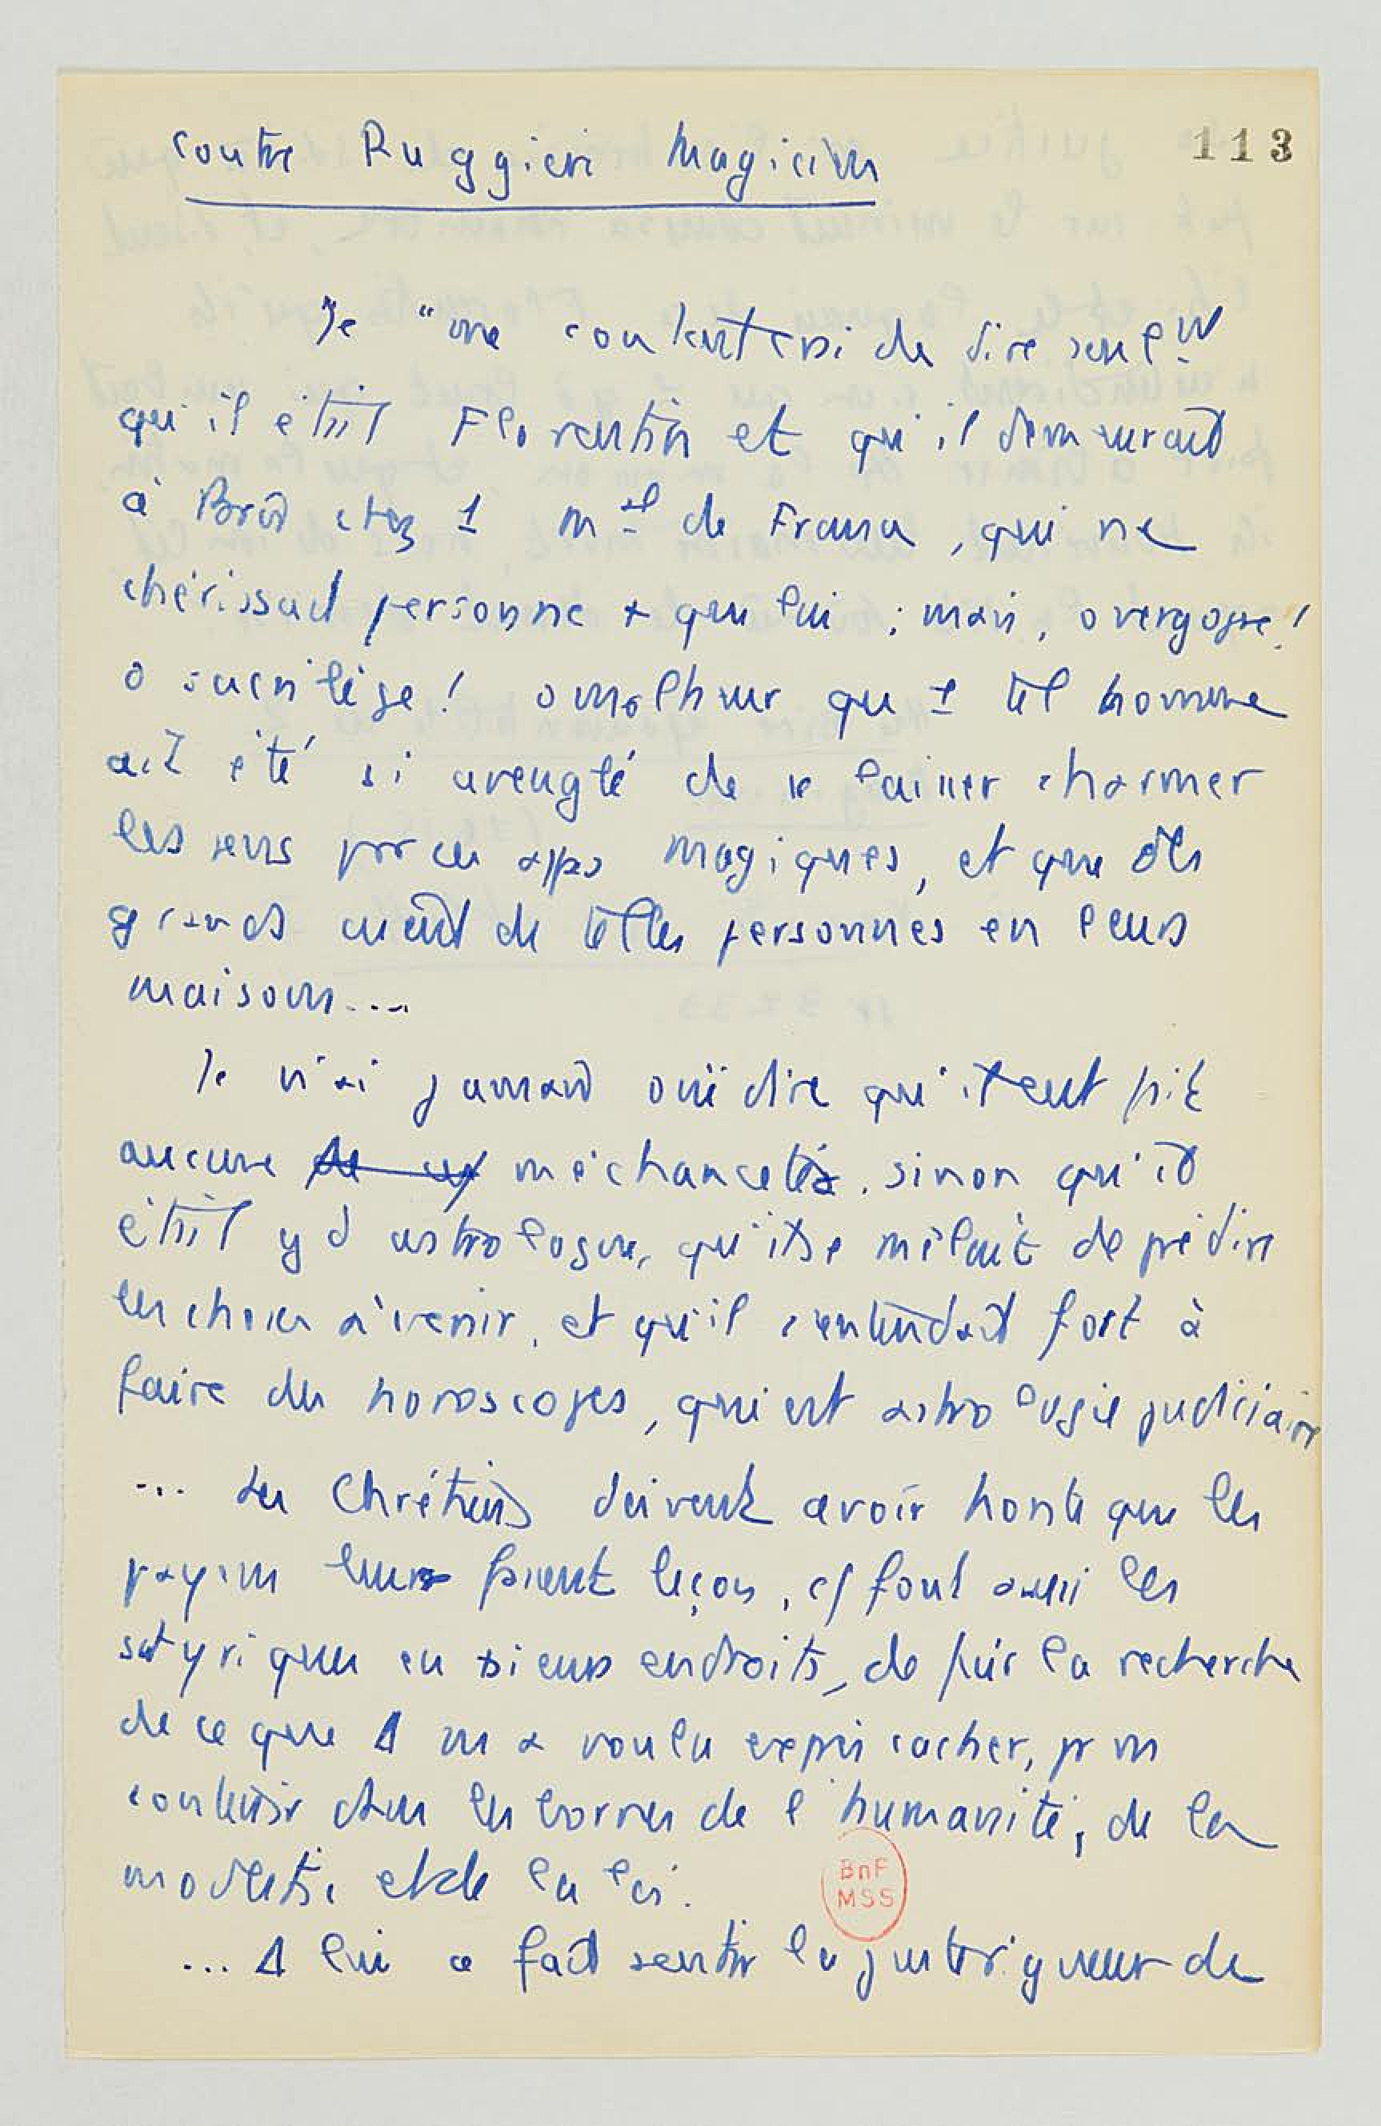 contre Ruggieri Magicien
113
Je "me contenterai de dire seulemt
qu'il était Florentin et qu'il demeurait
à chez 1 mal de France, qui ne
chérissait personne + que lui ; mais, o vergogne !
o sacrilège ! o malheur que 1 tel homme
ait été si aveuglé de se laisser charmer
les sens par ces apps magiques, et que des
grands aient de telles personnes en leurs
maisons....
Je n'ai jamais ouï dire qu'il eut fait
aucune méchanceté, sinon qu'il
était gd astrologue, qu'il se mêlait de prédire
les choses à venir, et qu'il s'entendait fort à
faire des horoscopes, qui est astrologie judiciaire
... Les Chrétiens doivent avoir honte que les
payens leur fassent leçon, cf font aussi les
satyriques en +sieurs endroits, de fuir la recherche
de ce que Δ ns a voulu exprès cacher, pr ns
contenir dans les bornes de l'humanité, de la
modestie et de la loi.
BnF
MSS
... Δ lui a fait sentir la juste rigueur de